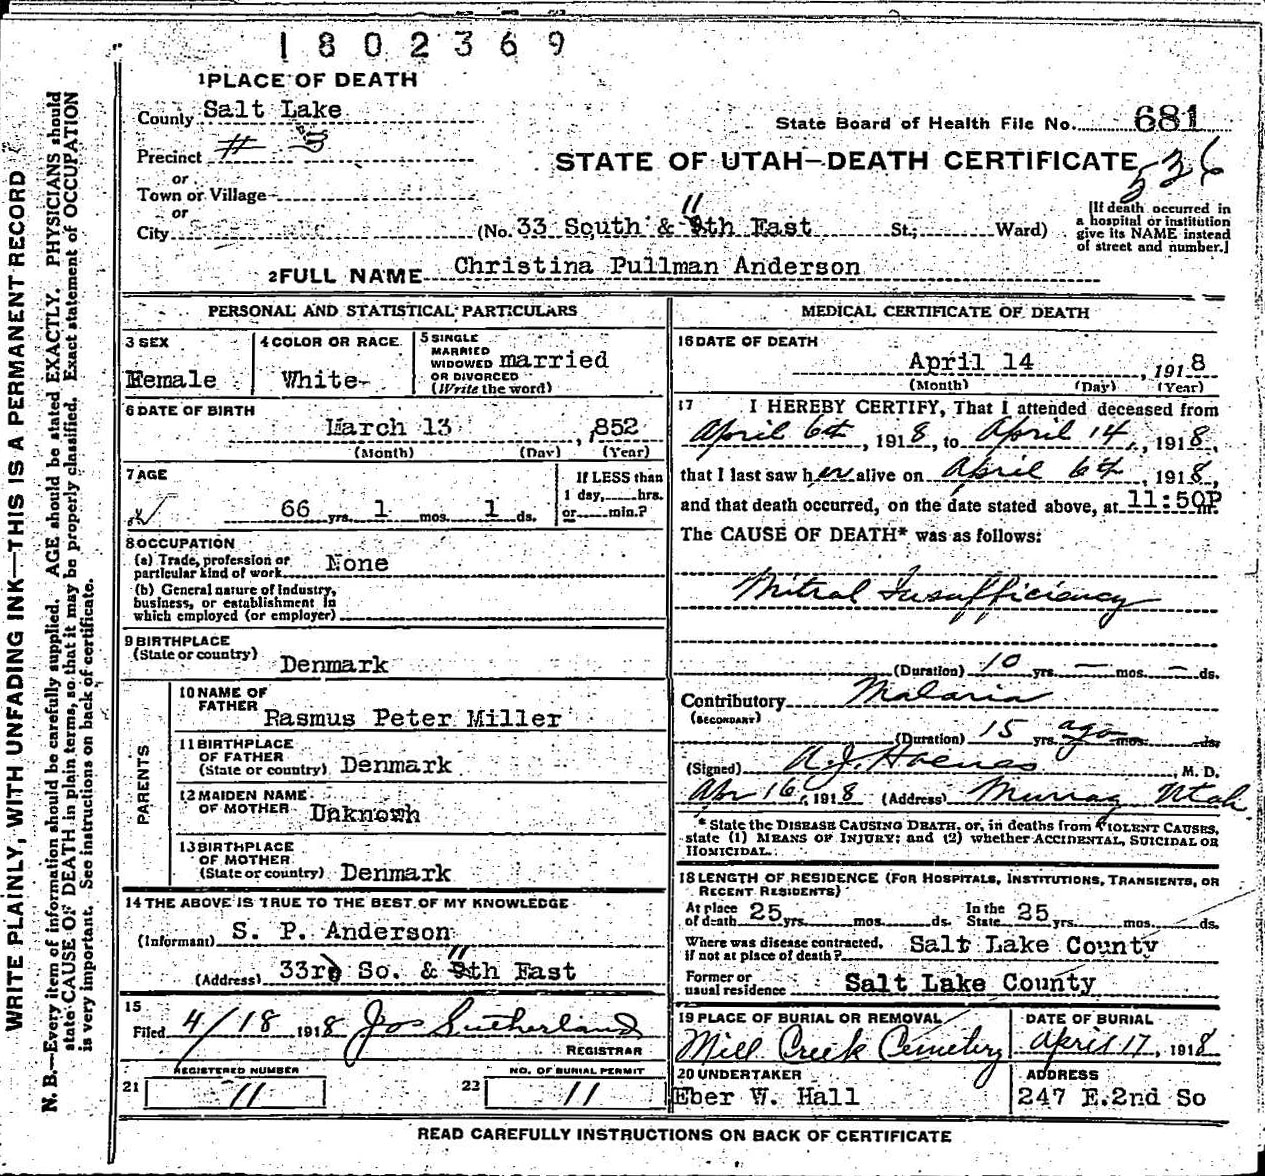 1802369
1 PLACE OF DEATH
County Salt Lake
State Board of Health File No. 681
Precinct # 5
STATE OF UTAH—DEATH CERTIFICATE
526
or
Town or Village
or
City (No. 33 South & 11 9th East St.; Ward)
[If death occurred in
a hospital or institution
give its NAME instead
of street and number.]
2 FULL NAME Christina Pullman Anderson
PERSONAL AND STATISTICAL PARTICULARS
3 SEX
Female
4 COLOR OR RACE
White
5 SINGLE
MARRIED
WIDOWED
OR DIVORCED
(Write the word)
married
6 DATE OF BIRTH
March 13, 1852
(Month) (Day) (Year)
7 AGE
66 yrs. 1 mos. 1 ds.
If LESS than
1 day, hrs.
or min.?
8 OCCUPATION
(a) Trade, profession or
particular kind of work None
(b) General nature of Industry,
business, or establishment in
which employed (or employer)
9 BIRTHPLACE
(State or country)
Denmark
PARENTS
10 NAME OF
FATHER
Rasmus Peter Miller
11 BIRTHPLACE
OF FATHER
(State or country) Denmark
12 MAIDEN NAME
OF MOTHER Unknown
13 BIRTHPLACE
OF MOTHER
(State or country) Denmark
14 THE ABOVE IS TRUE TO THE BEST OF MY KNOWLEDGE
(Informant) S. P. Anderson
(Address) 33rd So. & 11 9th East
15
Filed 4/18 1918 Jos Sutherland
REGISTRAR
REGISTERED NUMBER
21 11
NO. OF BURIAL PERMIT
22 11
MEDICAL CERTIFICATE OF DEATH
16 DATE OF DEATH
April 14, 1918
(Month) (Day) (Year)
17 I HEREBY CERTIFY, That I attended deceased from
April 6th, 1918, to April 14, 1918,
that I last saw her alive on April 6th, 1918,
and that death occurred, on the date stated above, at 11:50P m.
The CAUSE OF DEATH* was as follows:
Mitral Insufficiency
(Duration) 10 yrs. — mos. — ds.
Contributory Malaria
(SECONDARY)
(Duration) 15 yrs. ago mos. ds.
(Signed) , M. D.
Apr 16, 1918 (Address) Murray Utah
* State the DISEASE CAUSING DEATH, or, in deaths from VIOLENT CAUSES,
state (1) MEANS OF INJURY; and (2) whether ACCIDENTAL, SUICIDAL OR
HOMICIDAL.
18 LENGTH OF RESIDENCE (FOR HOSPITALS, INSTITUTIONS, TRANSIENTS, OR
RECENT RESIDENTS)
At place
of death 25 yrs. mos. ds. In the
State 25 yrs. mos. ds.
Where was disease contracted,
if not at place of death? Salt Lake County
Former or
usual residence Salt Lake County
19 PLACE OF BURIAL OR REMOVAL
Mill Creek Cemetery
DATE OF BURIAL
April 17, 1918
20 UNDERTAKER
Eber W. Hall
ADDRESS
247 E. 2nd So
READ CAREFULLY INSTRUCTIONS ON BACK OF CERTIFICATE
WRITE PLAINLY, WITH UNFADING INK—THIS IS A PERMANENT RECORD
N. B.—Every item of information should be carefully supplied. AGE should be stated EXACTLY. PHYSICIANS should
state CAUSE OF DEATH in plain terms, so that it may be properly classified. Exact statement of OCCUPATION
is very important. See instructions on back of certificate.